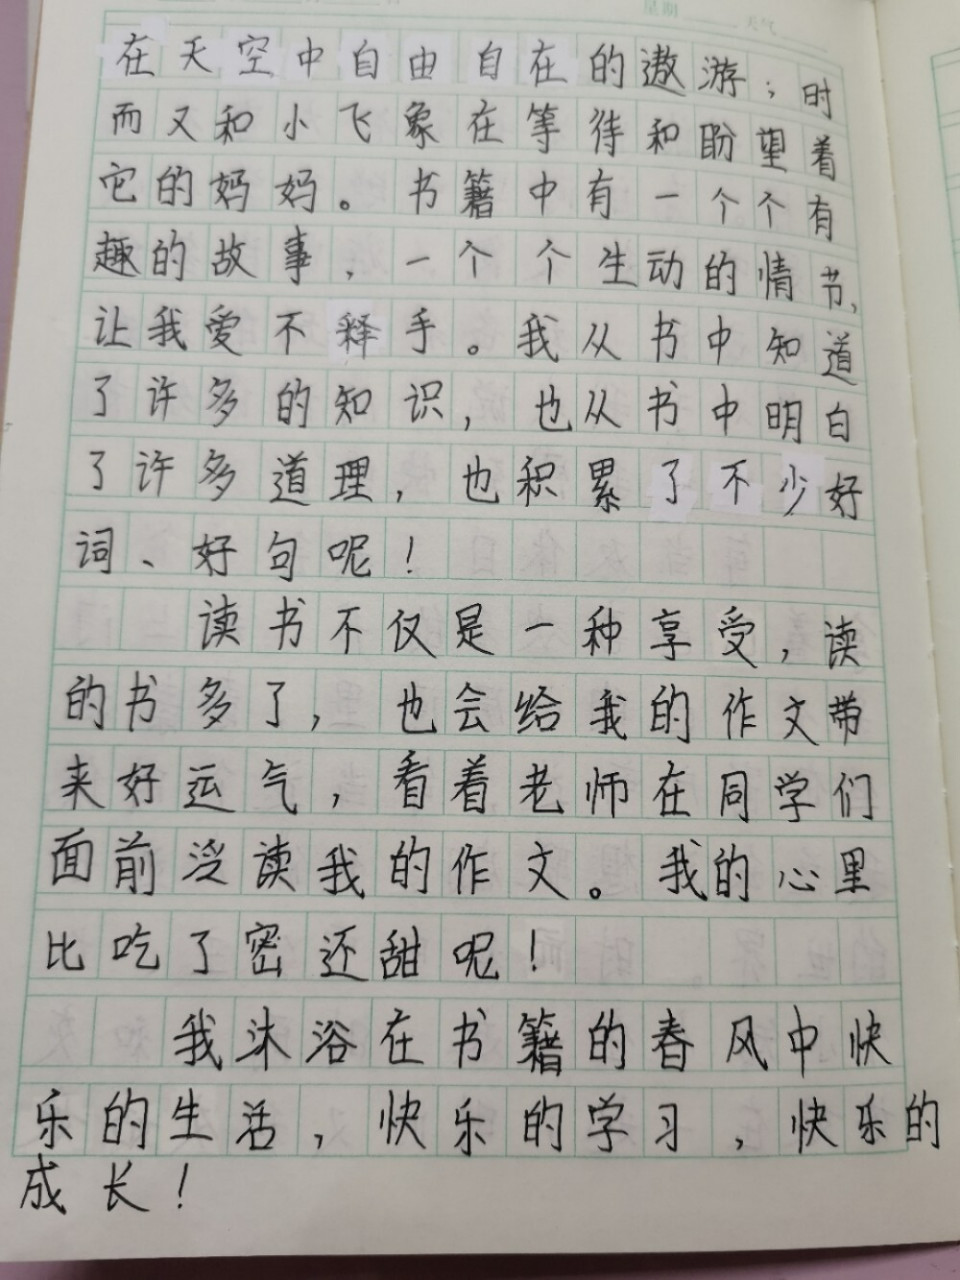 星期 天气
在天空中自由自在的遨游；时
而又和小飞象在等待和盼望着
它的妈妈。书籍中有一个个有
趣的故事，一个个生动的情节，
让我爱不释手。我从书中知道
了许多的知识，也从书中明白
了许多道理，也积累了不少好
词、好句呢！
读书不仅是一种享受，读
的书多了，也会给我的作文带
来好运气，看着老师在同学们
面前泛读我的作文。我的心里
比吃了密还甜呢！
我沐浴在书籍的春风中快
乐的生活，快乐的学习，快乐的
成长！